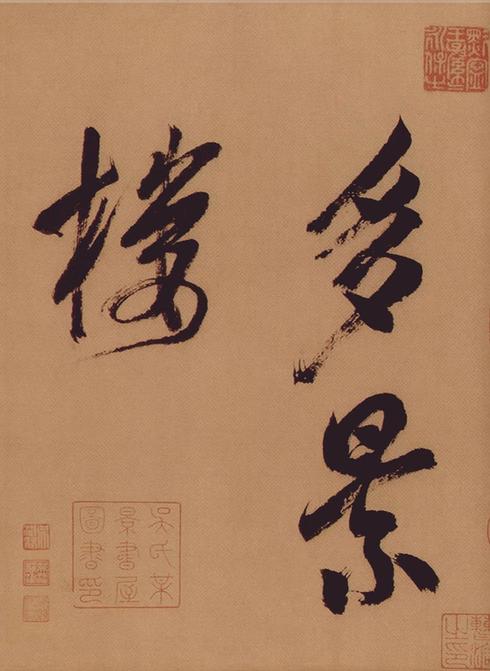 多景
樓
吳氏某
景書屋
圖書印